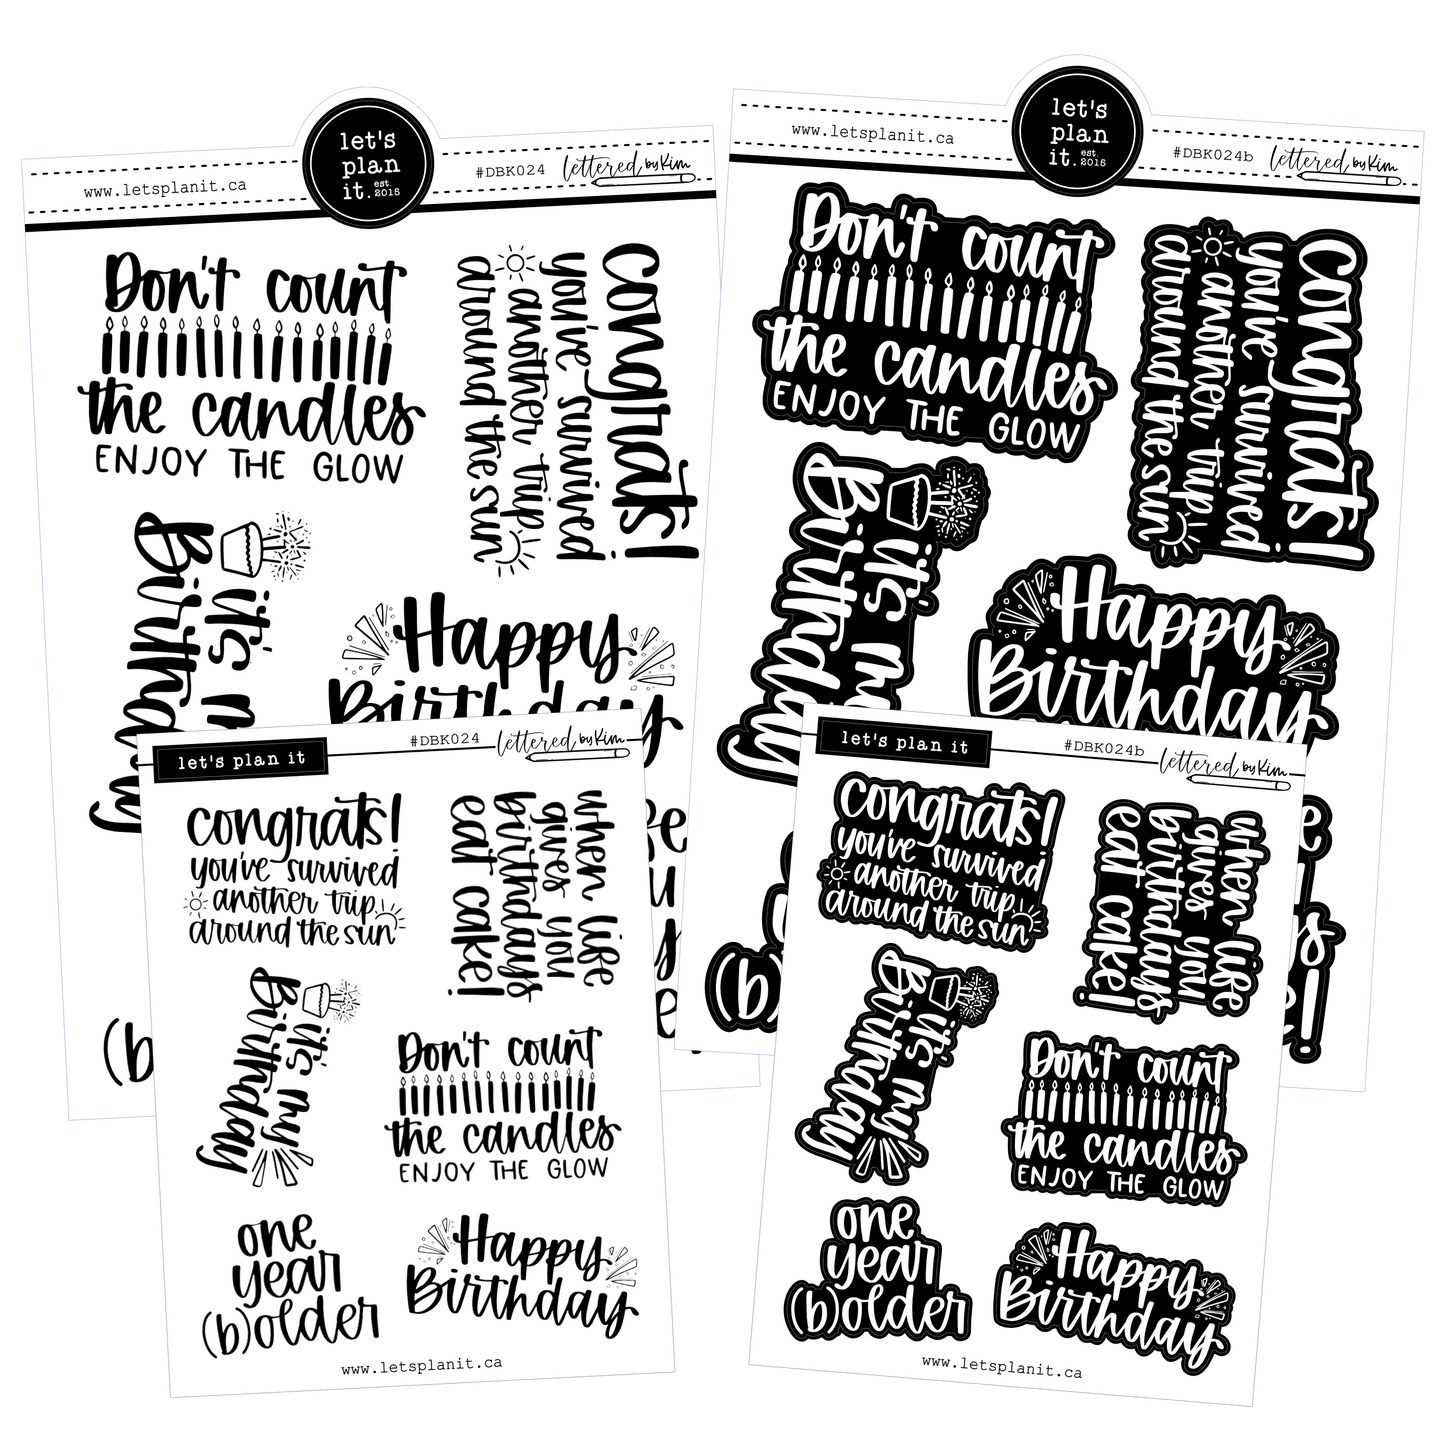 let's
plan
it. est. 2015
www.letsplanit.ca
#DBK024
lettered by Kim
Don't count
the candles
ENJOY THE GLOW
congrats!
you've survived
another trip
around the sun
it's my
Birthday
Happy
Birthday
(b
let's
plan
it. est. 2015
www.letsplanit.ca
#DBK024b
lettered by Kim
Don't count
the candles
ENJOY THE GLOW
congrats!
you've survived
another trip
around the sun
it's my
Birthday
Happy
Birthday
(b)
let's plan it
#DBK024
lettered by Kim
congrats!
you've survived
another trip
around the sun
when life
gives you
birthdays
eat cake!
it's my
Birthday
Don't count
the candles
ENJOY THE GLOW
one
year
(b)older
Happy
Birthday
www.letsplanit.ca
let's plan it
#DBK024b
lettered by Kim
congrats!
you've survived
another trip
around the sun
when life
gives you
birthdays
eat cake!
it's my
Birthday
Don't count
the candles
ENJOY THE GLOW
one
year
(b)older
Happy
Birthday
www.letsplanit.ca